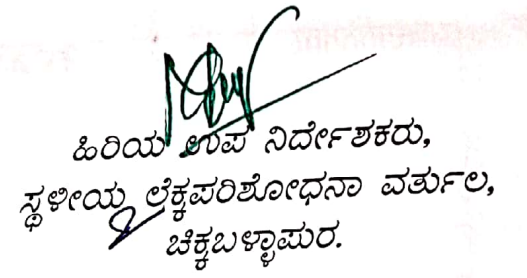 ಹಿರಿಯ ಉಪ ನಿರ್ದೇಶಕರು,
ಸ್ಥಳೀಯ ಲೆಕ್ಕಪರಿಶೋಧನಾ ವರ್ತುಲ,
ಚಿಕ್ಕಬಳ್ಳಾಪುರ.